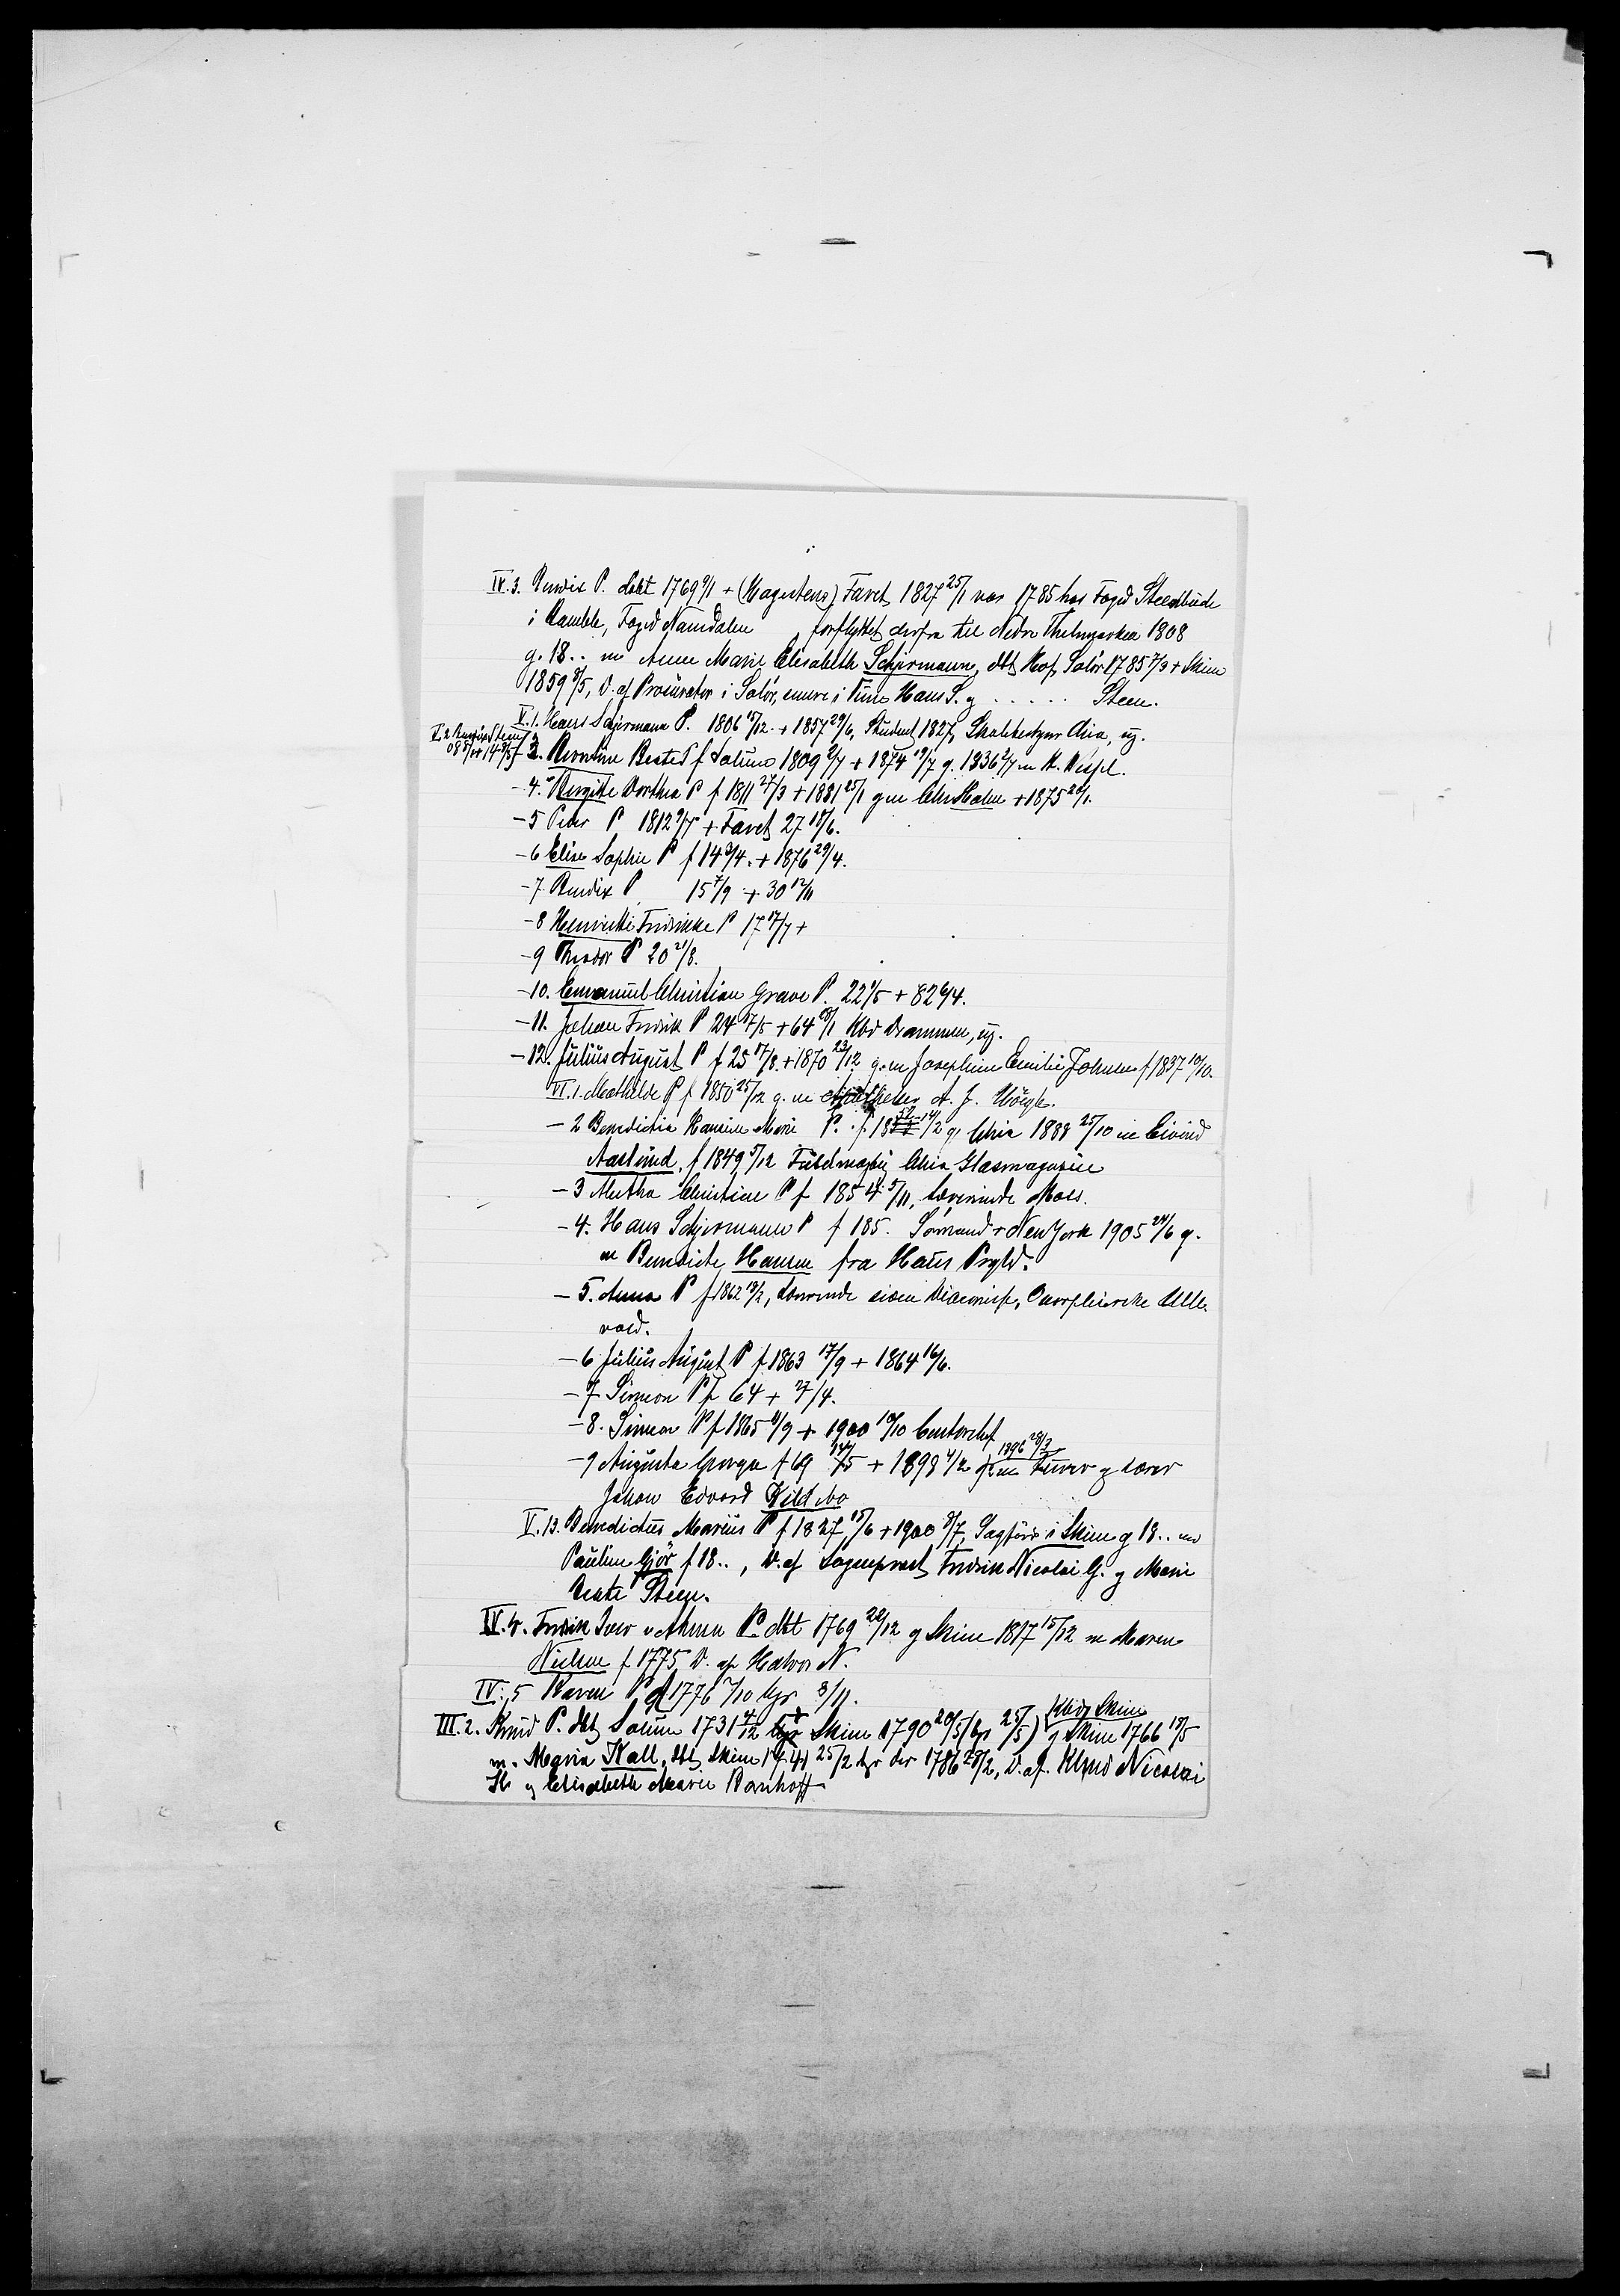 IV. 3. Bendix P. døbt 1769 9/1 + (Hagestens) Tavet 1827 25/1 var 1785 hos Foged Steenbude
i Bamble, Foged Namdalen forflyttet derfra til Nedre Thelemarken 1808
g. 18.. m Anne Marie Elisabeth Schjermann, dbt Hof Solør 1785 7/3 + Skien
1859 8/5, D. af Procurator i Solør, senere i Hans S. g ..... Steen.
V. 1. Hans Schjermann P. 1806 15/12 + 1857 29/6, Student 1827, Skolebestyrer Chria, ug.
V. 2 Bendix Steen P
3. Berntine Beate P f Solum 1809 2/7 + 1874 19/7 g. 1836 2/7 m H.
- 4. Birgitte Dorthea P f 1811 27/3 + 1881 25/1 gm Chr Holm + 1875 20/1.
- 5 Peter P 1812 9/7 + Tavet 27 18/6.
- 6 Elise Sophie P f 14 3/4. + 1876 29/4.
- 7. Bendix P. 15 7/9 + 30 12/11
- 8 Henriette Fredrikke P 17 17/7 +
- 9 Theodor P 20 21/8.
- 10. Emanuel Christian Grave P. 22 1/5 + 82 6/4.
- 11. Johan Fredrik P 24 17/5 + 64 18/1 Kbd Drammen, ug.
- 12. Julius August P f 25 17/8. + 1870 23/12 g. m Josephine Emilie Johnsen f. 1837 10/10.
VI. 1. Mathilde P f 1850 25/12 g. m Apotheker A. J.
- 2 Benedicta Hansine Marie P. f. 1852 14/2 g. Chria 1888 25/10 m Eivind
Aaslund, f 1849 5/12 Chria Glasmagasin
- 3 Martha Christine P f 1854 5/11, Lærerinde Moss.
- 4. Hans Schjermann P f 185. Sømand + New York 1905 24/6 g.
m Benedicte Hansen fra Haus Prgld.
- 5. Anna P f 1862 13/2, Lærerinde siden Diaconisse, Oversøster Ulle-
vold.
- 6 Julius August P f. 1863 17/9 + 1864 16/6.
- 7 Simon P f 64 + 27/4.
- 8. Simon P f 1865 11/9 + 1900 10/10 Contorchef
- 9 Augusta Georgia f 69 14/5 + 1898 4/2 g 1896 28/3 m Kirkes. og Lærer
Johan Edvard Kildebo
V. 13. Benedictus Marius P f 1827 18/6 + 1900 8/7, Sagfører i Skien g 18.. m
Pauline Gjør f 18.., D. af Sogneprest Fredrik Nicolai G. g Marie
Beate Steen.
IV. 4. Fredrik Iver v. Ahnen P. dbt 1769 22/12 g Skien 1817 15/12 m Maren
Nielsen f 1775 D. af Halvor N.
IV. 5 Karen P f 1776 7/10 bgr. 3/11.
III. 2. Knud P. dbt Solum 1731 4/12 + Skien 1790 20/5 (bgr 25/5) Kbd i Skien g Skien 1766 13/5
m. Maria Kall, dbt Skien 1741 25/2 bgr der 1786 28/2, D. af. Knud Nicolai
K. g Elisabeth Marie Ravnhoff